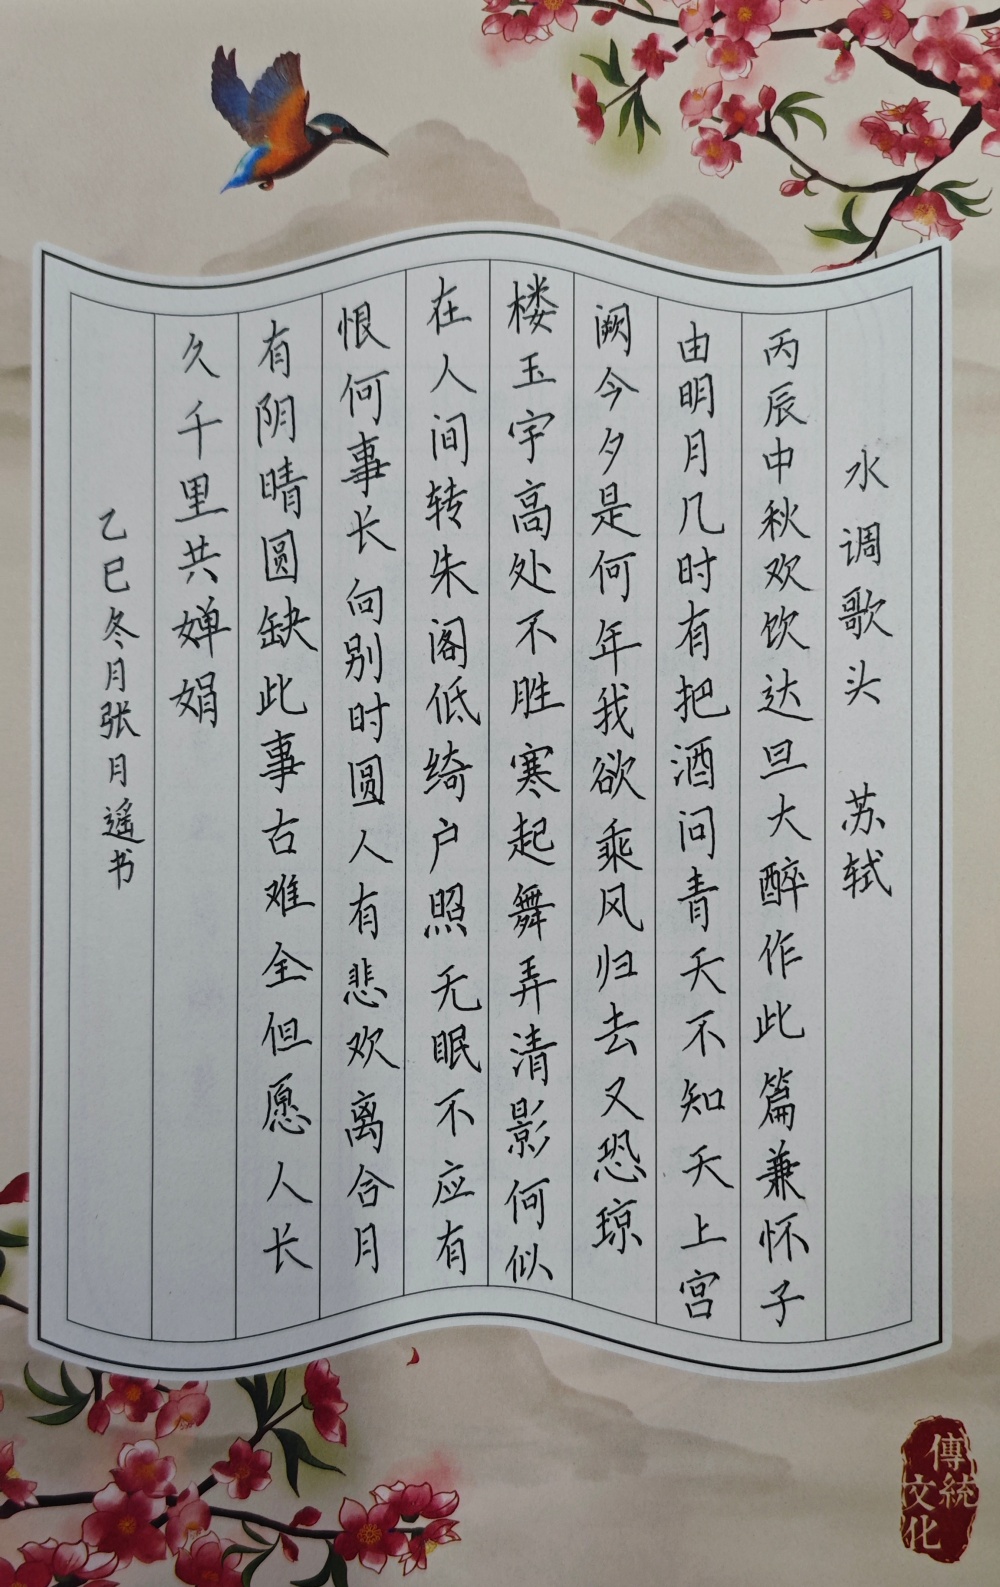 水调歌头 苏轼
丙辰中秋欢饮达旦大醉作此篇兼怀子
由明月几时有把酒问青天不知天上宫
阙今夕是何年我欲乘风归去又恐琼
楼玉宇高处不胜寒起舞弄清影何似
在人间转朱阁低绮户照无眠不应有
恨何事长向别时圆人有悲欢离合月
有阴晴圆缺此事古难全但愿人长
久千里共婵娟
乙巳冬月张月遥书
傳統
文化